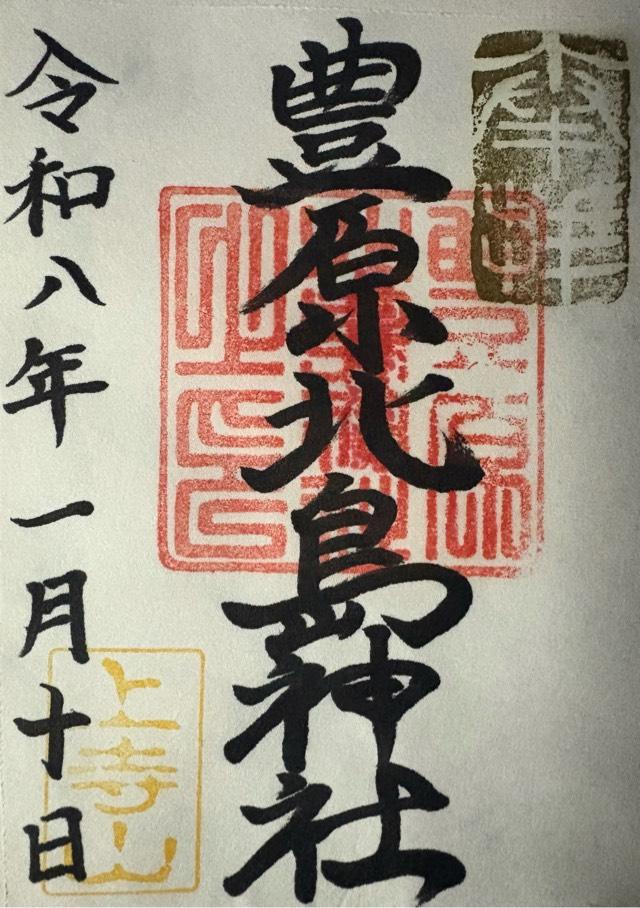 奉拝
豊原北島神社
令和八年一月十日
上寺山